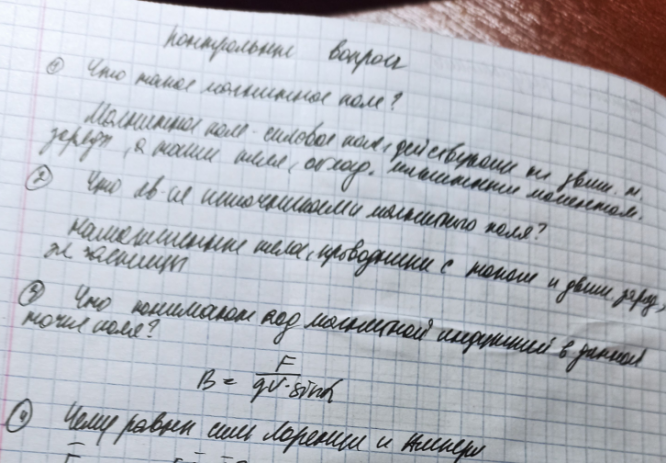 Контрольные вопросы
① Что такое магнитное поле?
Магнитное поле - силовое поле, действующее на движ. эл.
заряды, а также тела, облад. магнитным моментом.
② Что яв-ся источниками магнитного поля?
Намагниченные тела, проводники с током и движ. заряд.
частицы
③ Что понимают под магнитной индукцией в данной
точке поля?
B = F / qV·sinα
④ Чему равны силы Лоренца и Ампера